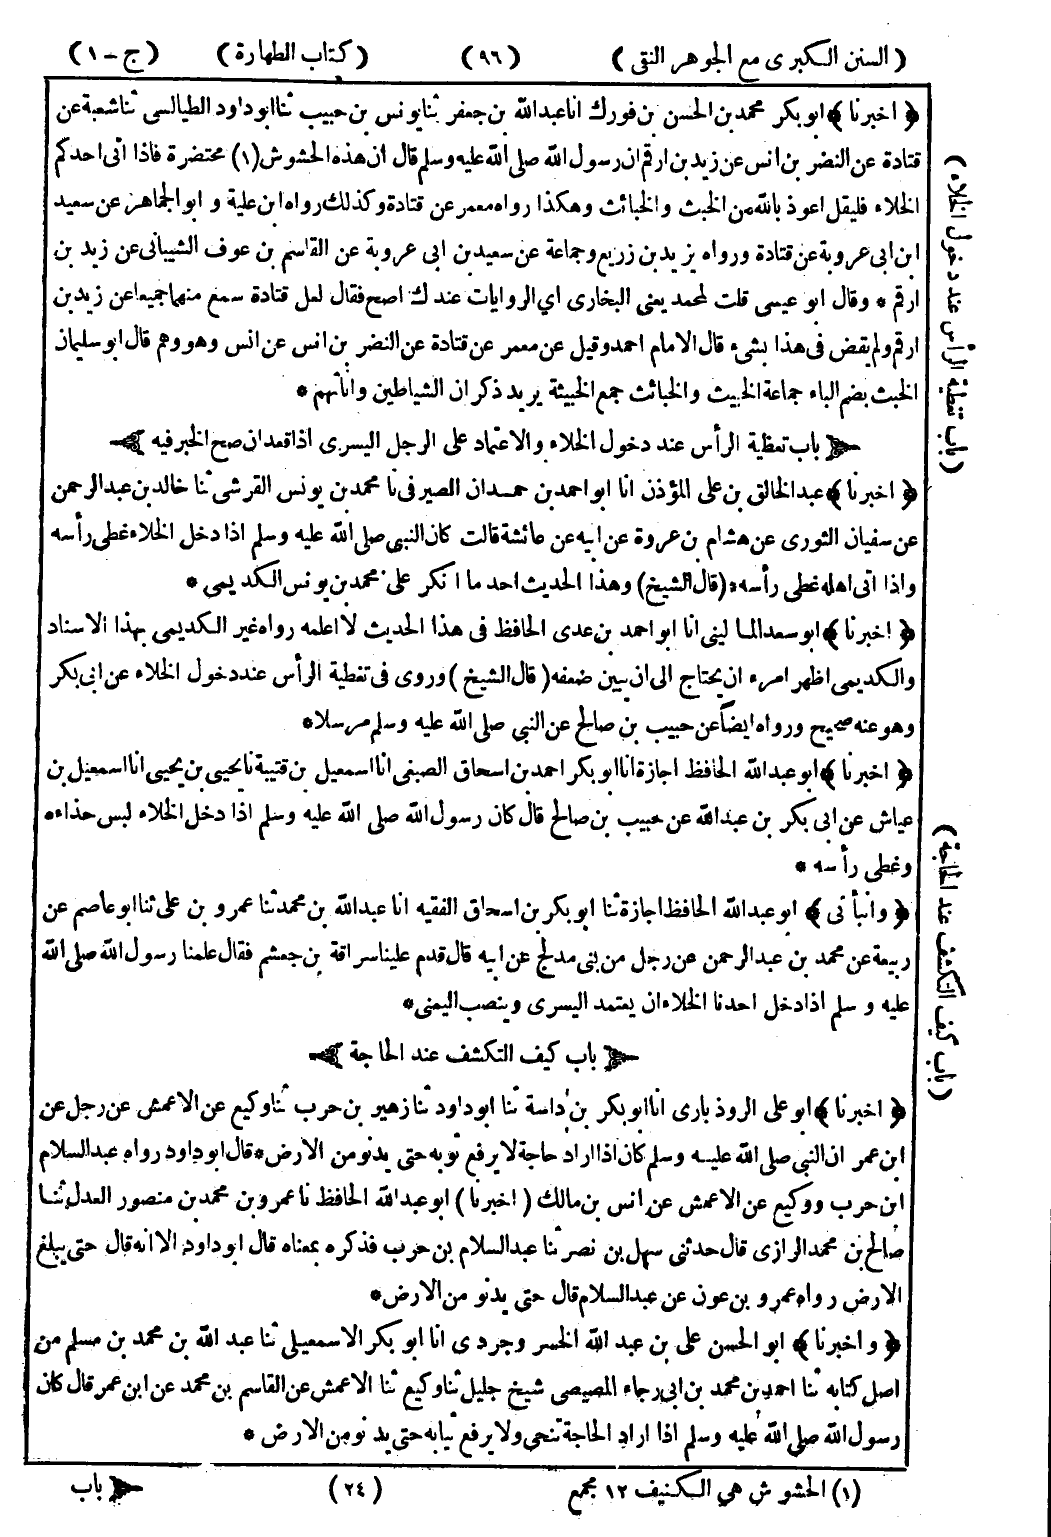 (السنن الكبرى مع الجوهر النقى) (٩٦) (كتاب الطهارة) (ج-١)
﴿اخبرنا﴾ ابو بكر محمد بن الحسن بن فورك انا عبدالله بن جعفر ثنا يونس بن حبيب ثنا ابوداود الطيالسى ثنا شعبة عن
قتادة عن النضر بن انس عن زيد بن ارقم ان رسول الله صلى الله عليه وسلم قال ان هذه الحشوش (١) محتضرة فاذا اتى احدكم
الخلاء فليقل اعوذ بالله من الخبث والخبائث وهكذا رواه معمر عن قتادة وكذلك رواه ابن علية و ابو الجماهر عن سعيد
ابن ابى عروبة عن قتادة ورواه يزيد بن زريع وجماعة عن سعيد بن ابى عروبة عن القاسم بن عوف الشيبانى عن زيد بن
ارقم * وقال ابو عيسى قلت لمحمد يعنى البخارى اي الروايات عندك اصح فقال لعل قتادة سمع منهما جميعا عن زيد بن
ارقم ولم يقض فى هذا بشىء قال الامام احمد وقيل عن معمر عن قتادة عن النضر بن انس عن انس وهو وهم قال ابو سليمان
الخبث بضم الباء جماعة الخبيث والخبائث جمع الخبيثة يريد ذكران الشياطين واناثهم *
باب تغطية الرأس عند دخول الخلاء والاعتماد على الرجل اليسرى اذا قعد ان صح الخبر فيه
﴿اخبرنا﴾ عبد الخالق بن على المؤذن انا ابو احمد بن حمدان الصيرفى نا محمد بن يونس القرشى ثنا خالد بن عبد الرحمن
عن سفيان الثورى عن هشام بن عروة عن ابيه عن عائشة قالت كان النبى صلى الله عليه وسلم اذا دخل الخلاء غطى رأسه
واذا اتى اهله غطى رأسه * (قال الشيخ) وهذا الحديث احد ما انكر على محمد بن يونس الكديمى *
﴿اخبرنا﴾ ابو سعد الما لينى انا ابو احمد بن عدى الحافظ فى هذا الحديث لا اعلمه رواه غير الكديمى بهذا الاسناد
والكديمى اظهر امره ان يحتاج الى ان يبين ضعفه (قال الشيخ) وروى فى تغطية الرأس عند دخول الخلاء عن ابى بكر
وهو عنه صحيح ورواه ايضاً عن حبيب بن صالح عن النبي صلى الله عليه وسلم مرسلا *
﴿اخبرنا﴾ ابو عبد الله الحافظ اجازة انا ابو بكر احمد بن اسحاق الصبغى انا اسمعيل بن قتيبة نا يحيى بن يحيى انا اسمعيل بن
عياش عن ابى بكر بن عبدالله عن حبيب بن صالح قال كان رسول الله صلى الله عليه وسلم اذا دخل الخلاء لبس حذاءه
وغطى رأسه *
﴿وانبأنى﴾ ابو عبدالله الحافظ اجازة ثنا ابو بكر بن اسحاق الفقيه انا عبدالله بن محمد ثنا عمرو بن على ثنا ابو عاصم عن
ربيعة عن محمد بن عبد الرحمن عن رجل من بنى مدلج عن ابيه قال قدم علينا سراقة بن جعشم فقال علمنا رسول الله صلى الله
عليه و سلم اذا دخل احدنا الخلاء ان يعتمد اليسرى وينصب اليمنى *
باب كيف التكشف عند الحاجة
﴿اخبرنا﴾ ابو على الروذبارى انا ابو بكر بن داسة ثنا ابو داود ثنا زهير بن حرب ثنا وكيع عن الاعمش عن رجل عن
ابن عمر ان النبي صلى الله عليه وسلم كان اذا اراد حاجة لا يرفع ثوبه حتى يدنو من الارض * قال ابو داود رواه عبد السلام
ابن حرب ووكيع عن الاعمش عن انس بن مالك (اخبرنا) ابو عبد الله الحافظ نا عمرو بن محمد بن منصور العدل ثنا
صالح بن محمد الرازى قال حدثنى سهل بن نصر ثنا عبد السلام بن حرب فذكره بمعناه قال ابو داود الا انه قال حتى يبلغ
الارض رواه عمرو بن عون عن عبد السلام قال حتى يدنو من الارض *
﴿واخبرنا﴾ ابو الحسن على بن عبد الله الخسروجردى انا ابو بكر الاسمعيلى ثنا عبد الله بن محمد بن مسلم من
اصل كتابه ثنا احمد بن محمد بن ابى رجاء المصيصى شيخ جليل ثنا وكيع ثنا الاعمش عن القاسم بن محمد عن ابن عمر قال كان
رسول الله صلى الله عليه وسلم اذا اراد الحاجة تنحى ولا يرفع ثيابه حتى يدنو من الارض *
(١) الحشوش هي الكنيف ١٢ مجمع (٢٤) باب
(باب تغطية الرأس عند دخول الخلاء)
(باب كيف التكشف عند الحاجة)